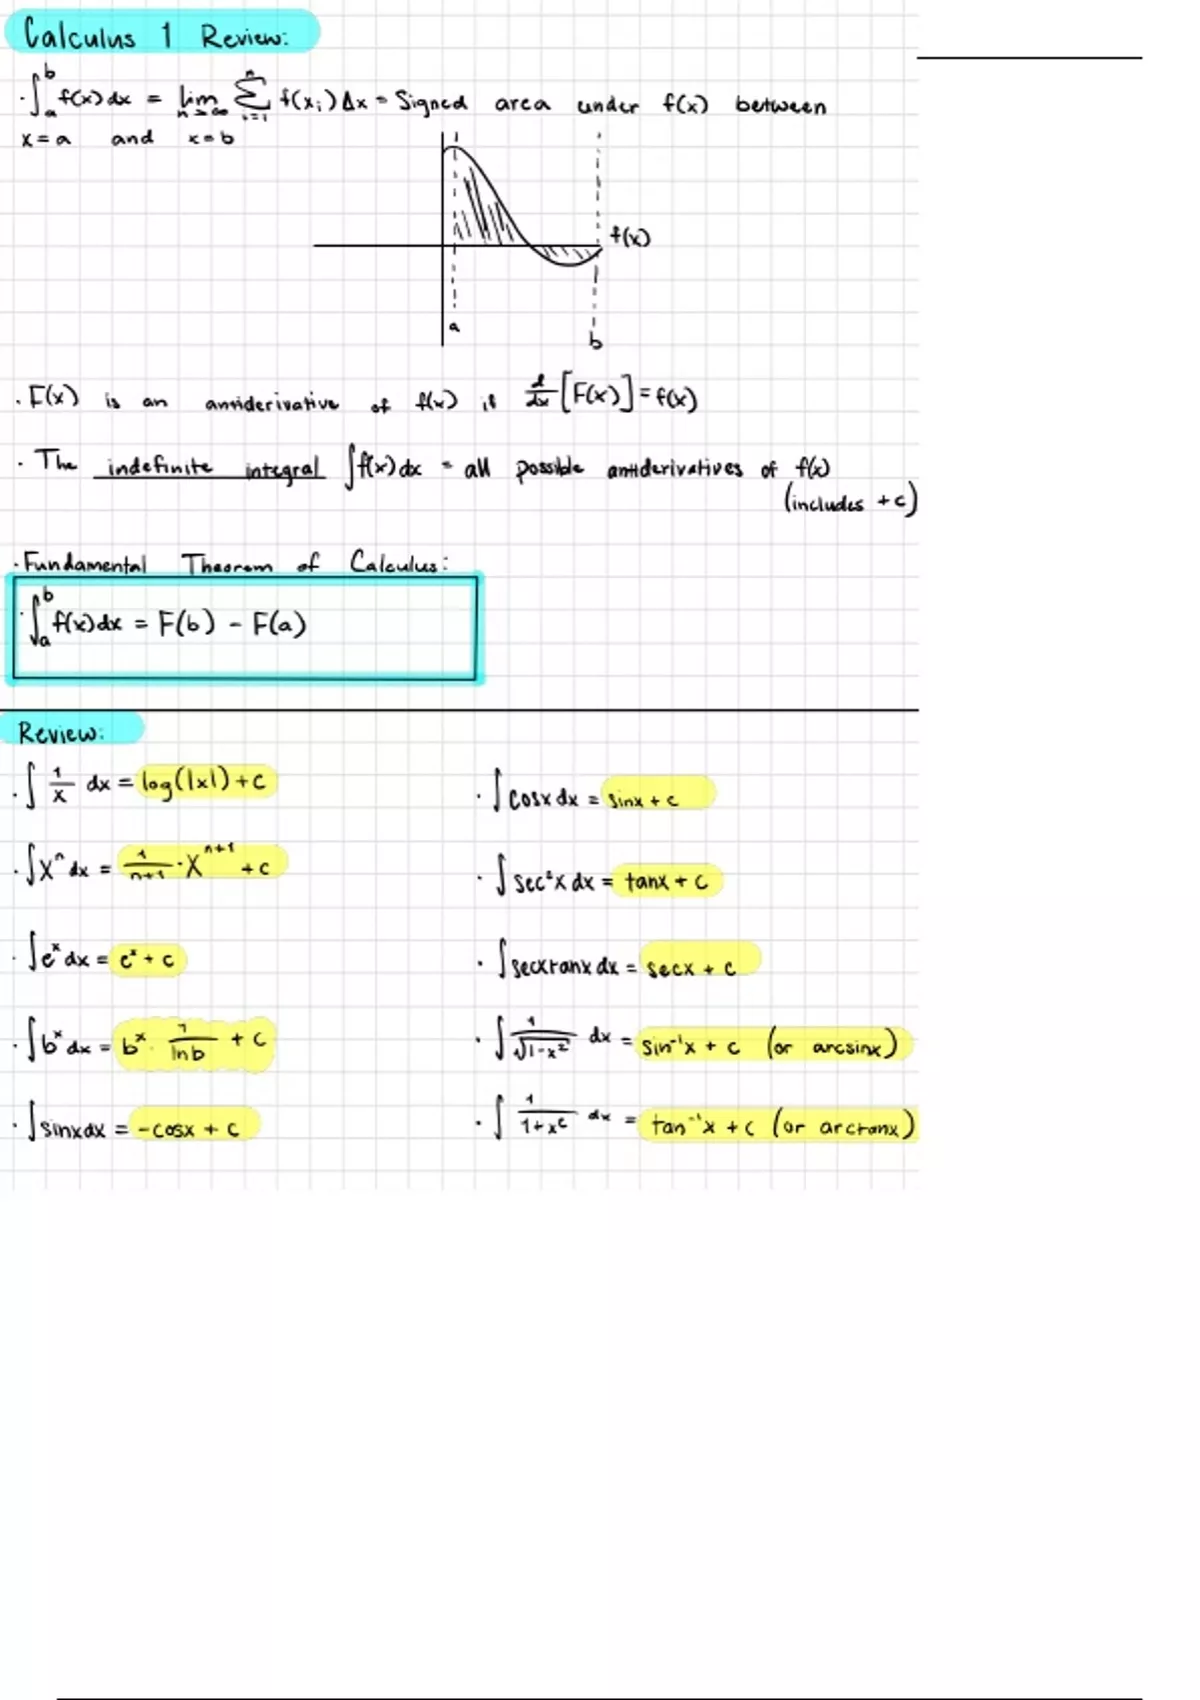 Calculus 1 Review:
· ∫_a^b f(x) dx = lim_{n→∞} Σ_{i=1}^n f(x_i) Δx = Signed area under f(x) between
x = a and x = b
f(x)
a
b
· F(x) is an antiderivative of f(x) if d/dx [F(x)] = f(x)
· The indefinite integral ∫f(x) dx = all possible antiderivatives of f(x)
(includes + c)
· Fundamental Theorem of Calculus:
· ∫_a^b f(x) dx = F(b) - F(a)
Review:
· ∫ 1/x dx = log(|x|) + c
· ∫ cosx dx = sinx + c
· ∫ x^n dx = 1/(n+1) · x^(n+1) + c
· ∫ sec²x dx = tanx + c
· ∫ e^x dx = e^x + c
· ∫ secxtanx dx = secx + c
· ∫ b^x dx = b^x · 1/lnb + c
· ∫ 1/√(1-x²) dx = sin⁻¹x + c (or arcsinx)
· ∫ sinxdx = -cosx + c
· ∫ 1/(1+x²) dx = tan⁻¹x + c (or arctanx)